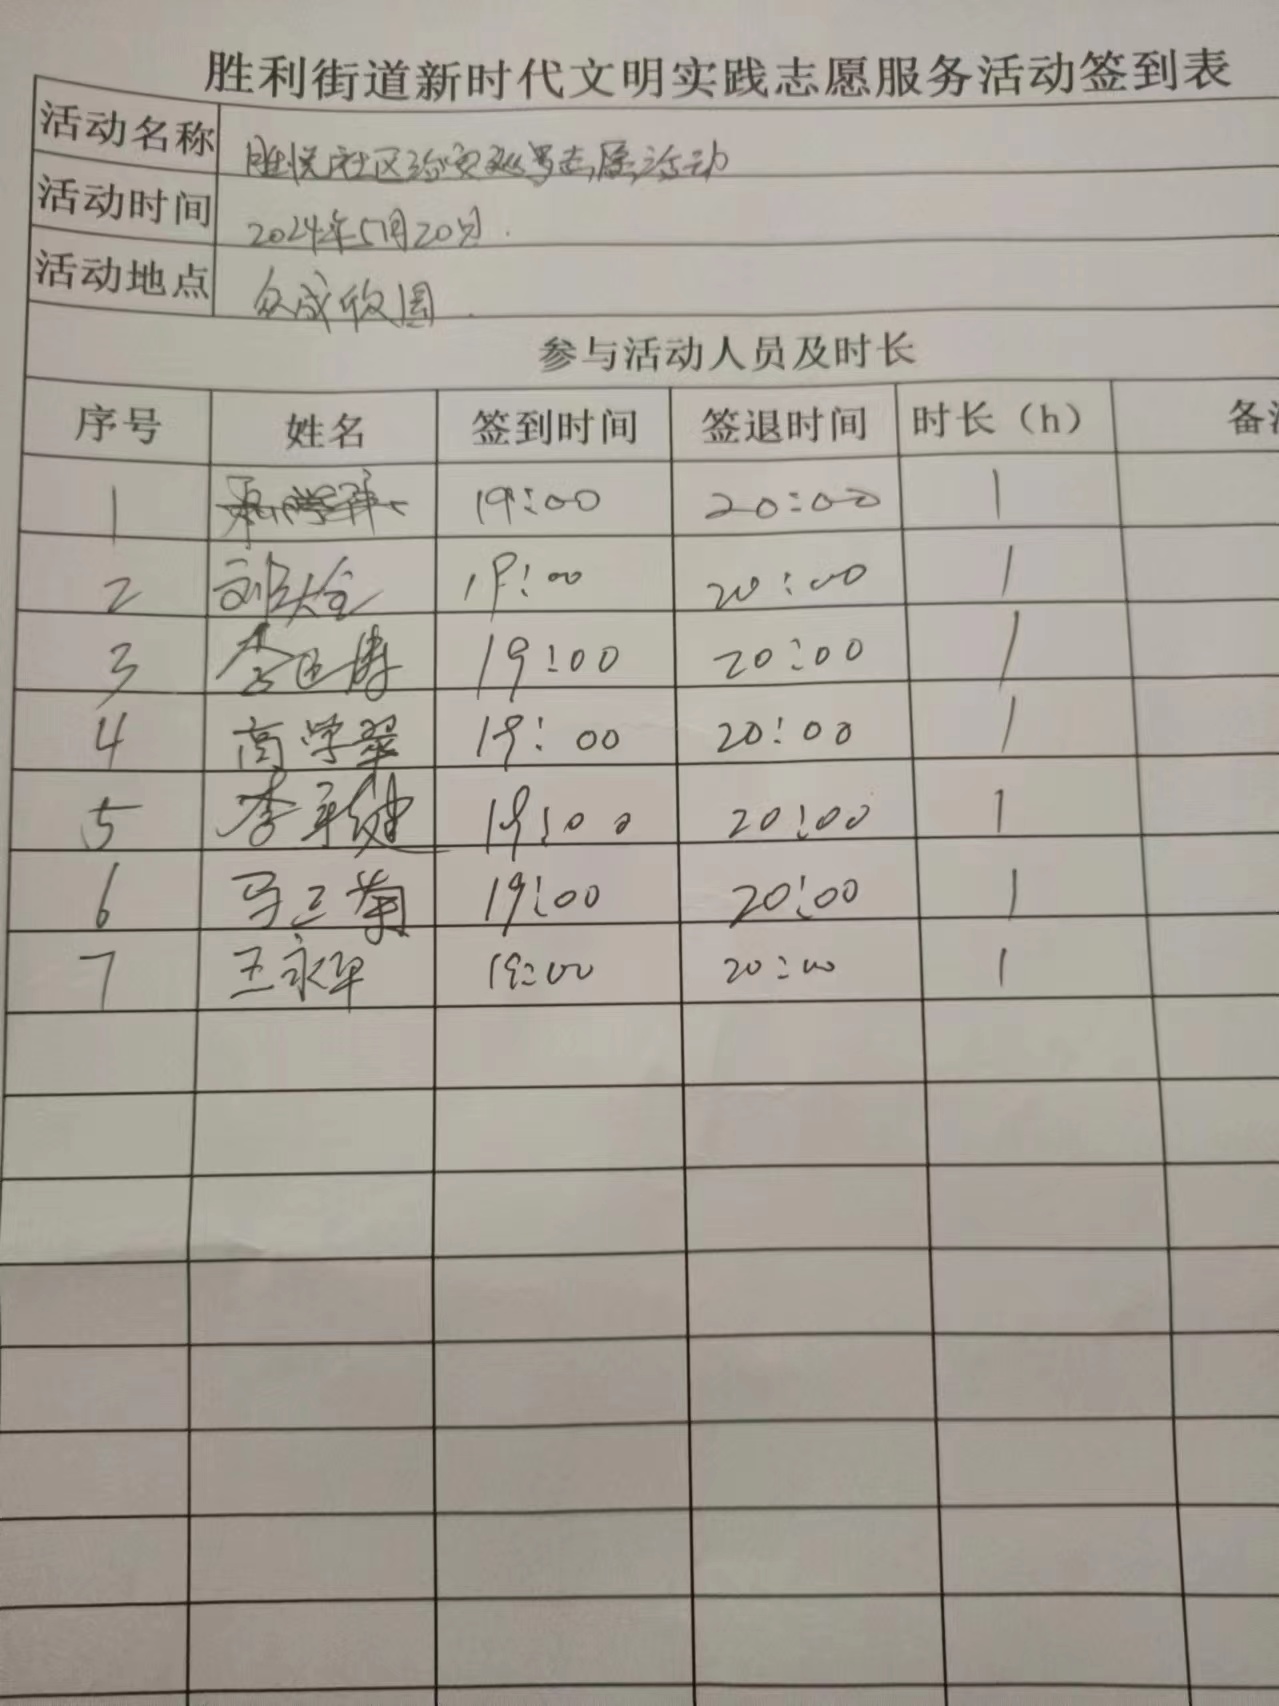 胜利街道新时代文明实践志愿服务活动签到表
活动名称 胜悦社区治安巡逻志愿活动
活动时间 2024年5月20日.
活动地点 众成欣园.
参与活动人员及时长
序号 姓名 签到时间 签退时间 时长（h） 备
1 19:00 20:00 1
2 19:00 20:00 1
3 19:00 20:00 1
4 高学翠 19:00 20:00 1
5 李 19:00 20:00 1
6 马兰菊 19:00 20:00 1
7 王永军 19:00 20:00 1